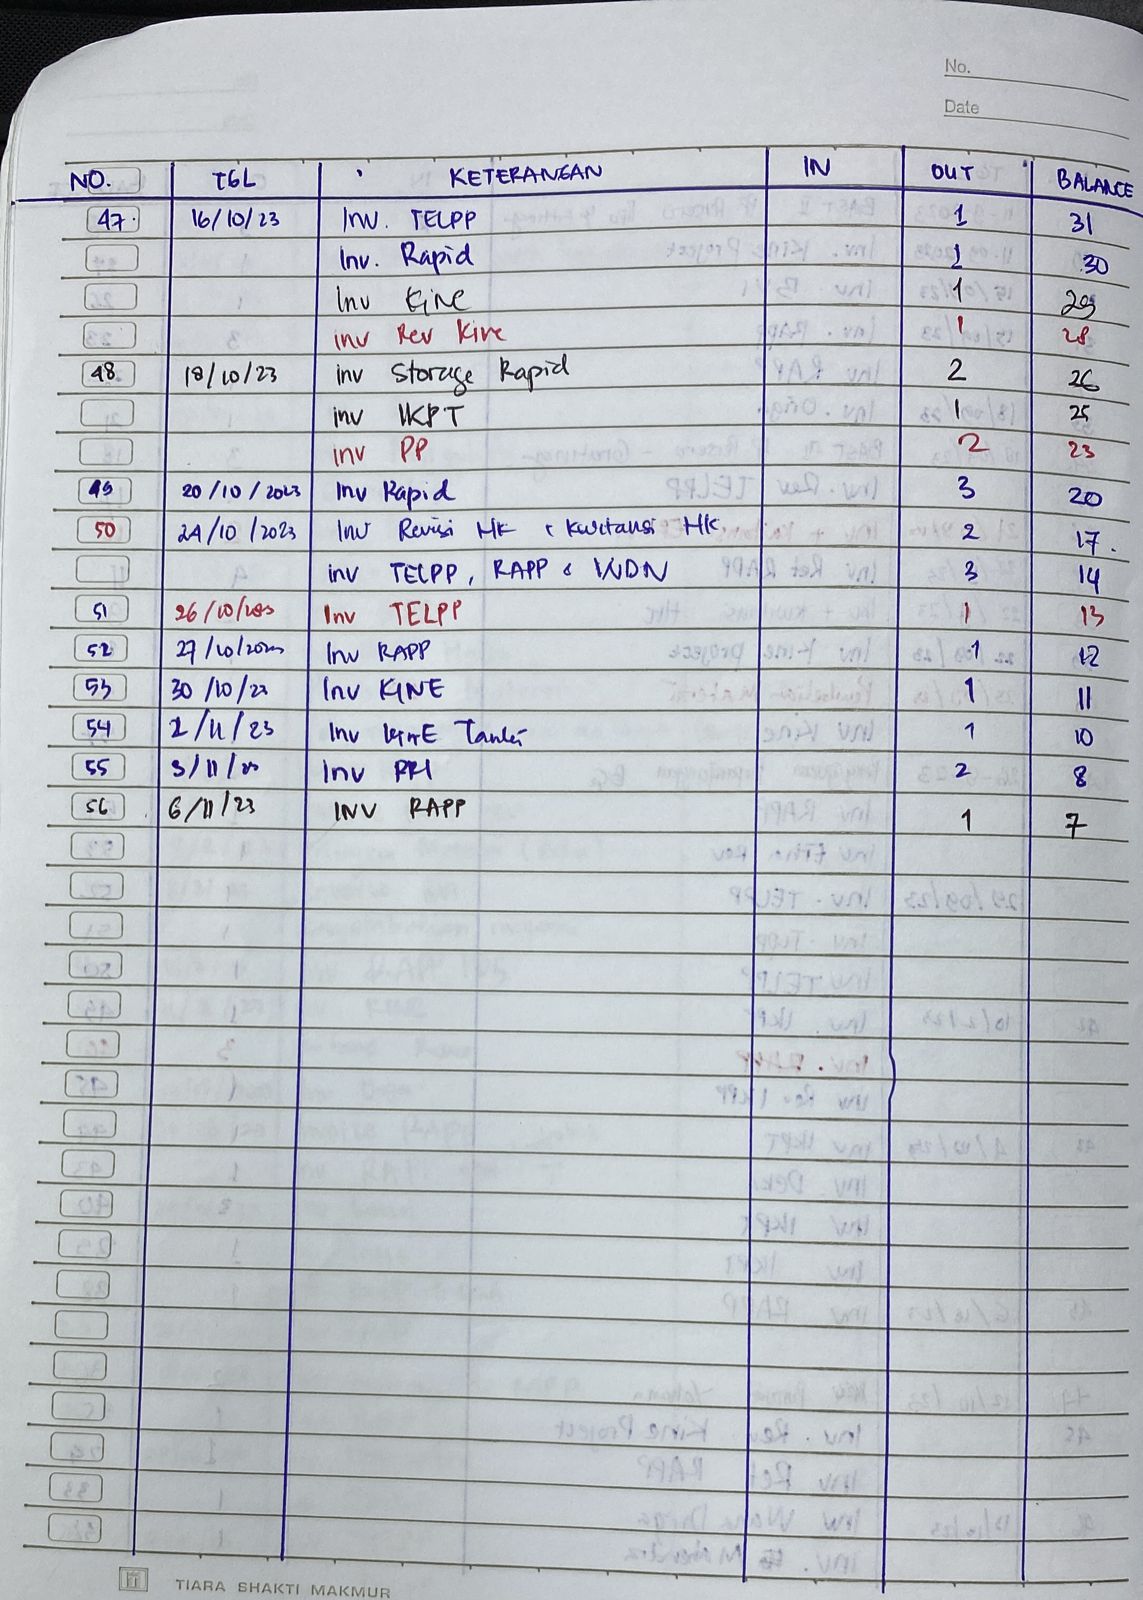 No.
Date
NO. TGL KETERANGAN IN OUT BALANCE
47. 16/10/23 Inv. TELPP 1 31
Inv. Rapid 1 30
Inv Kine 1 29
inv Rev Kine 1 28
48 18/10/23 inv Storage Rapid 2 26
inv IKPT 1 25
inv PP 2 23
49 20/10/2023 Inv Rapid 3 20
50 24/10/2023 Inv Revisi HK & Kwitansi HK 2 17.
inv TELPP, RAPP & WDN 3 14
51 26/10/2023 Inv TELPP 1 13
52 27/10/2023 Inv RAPP 1 12
53 30/10/23 Inv KINE 1 11
54 2/11/23 Inv KINE 1 10
55 3/11/23 Inv 2 8
56 6/11/23 INV RAPP 1 7
TIARA SHAKTI MAKMUR